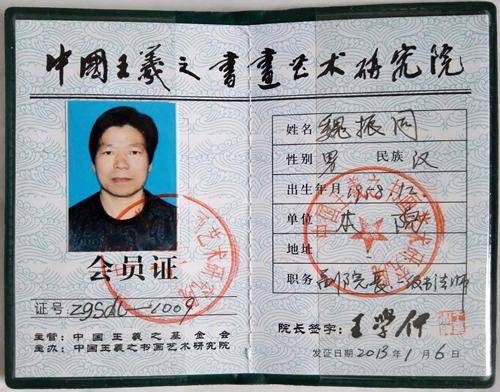 中國王羲之書畫艺术研究院
会员证
证号 zgsdc-1009
主管：中国王羲之基金会
主办：中国王羲之书画艺术研究院
姓名 魏振同
性别 男 民族 汉
出生年月 1958.12
单位 本院
地址
职务 副院长 一级书法师
院长签字：王學仟
发证日期 2013年1月6日